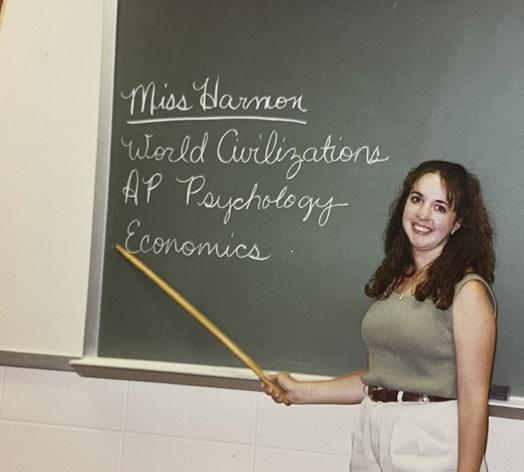 Miss Harmon
World Civilizations
AP Psychology
Economics